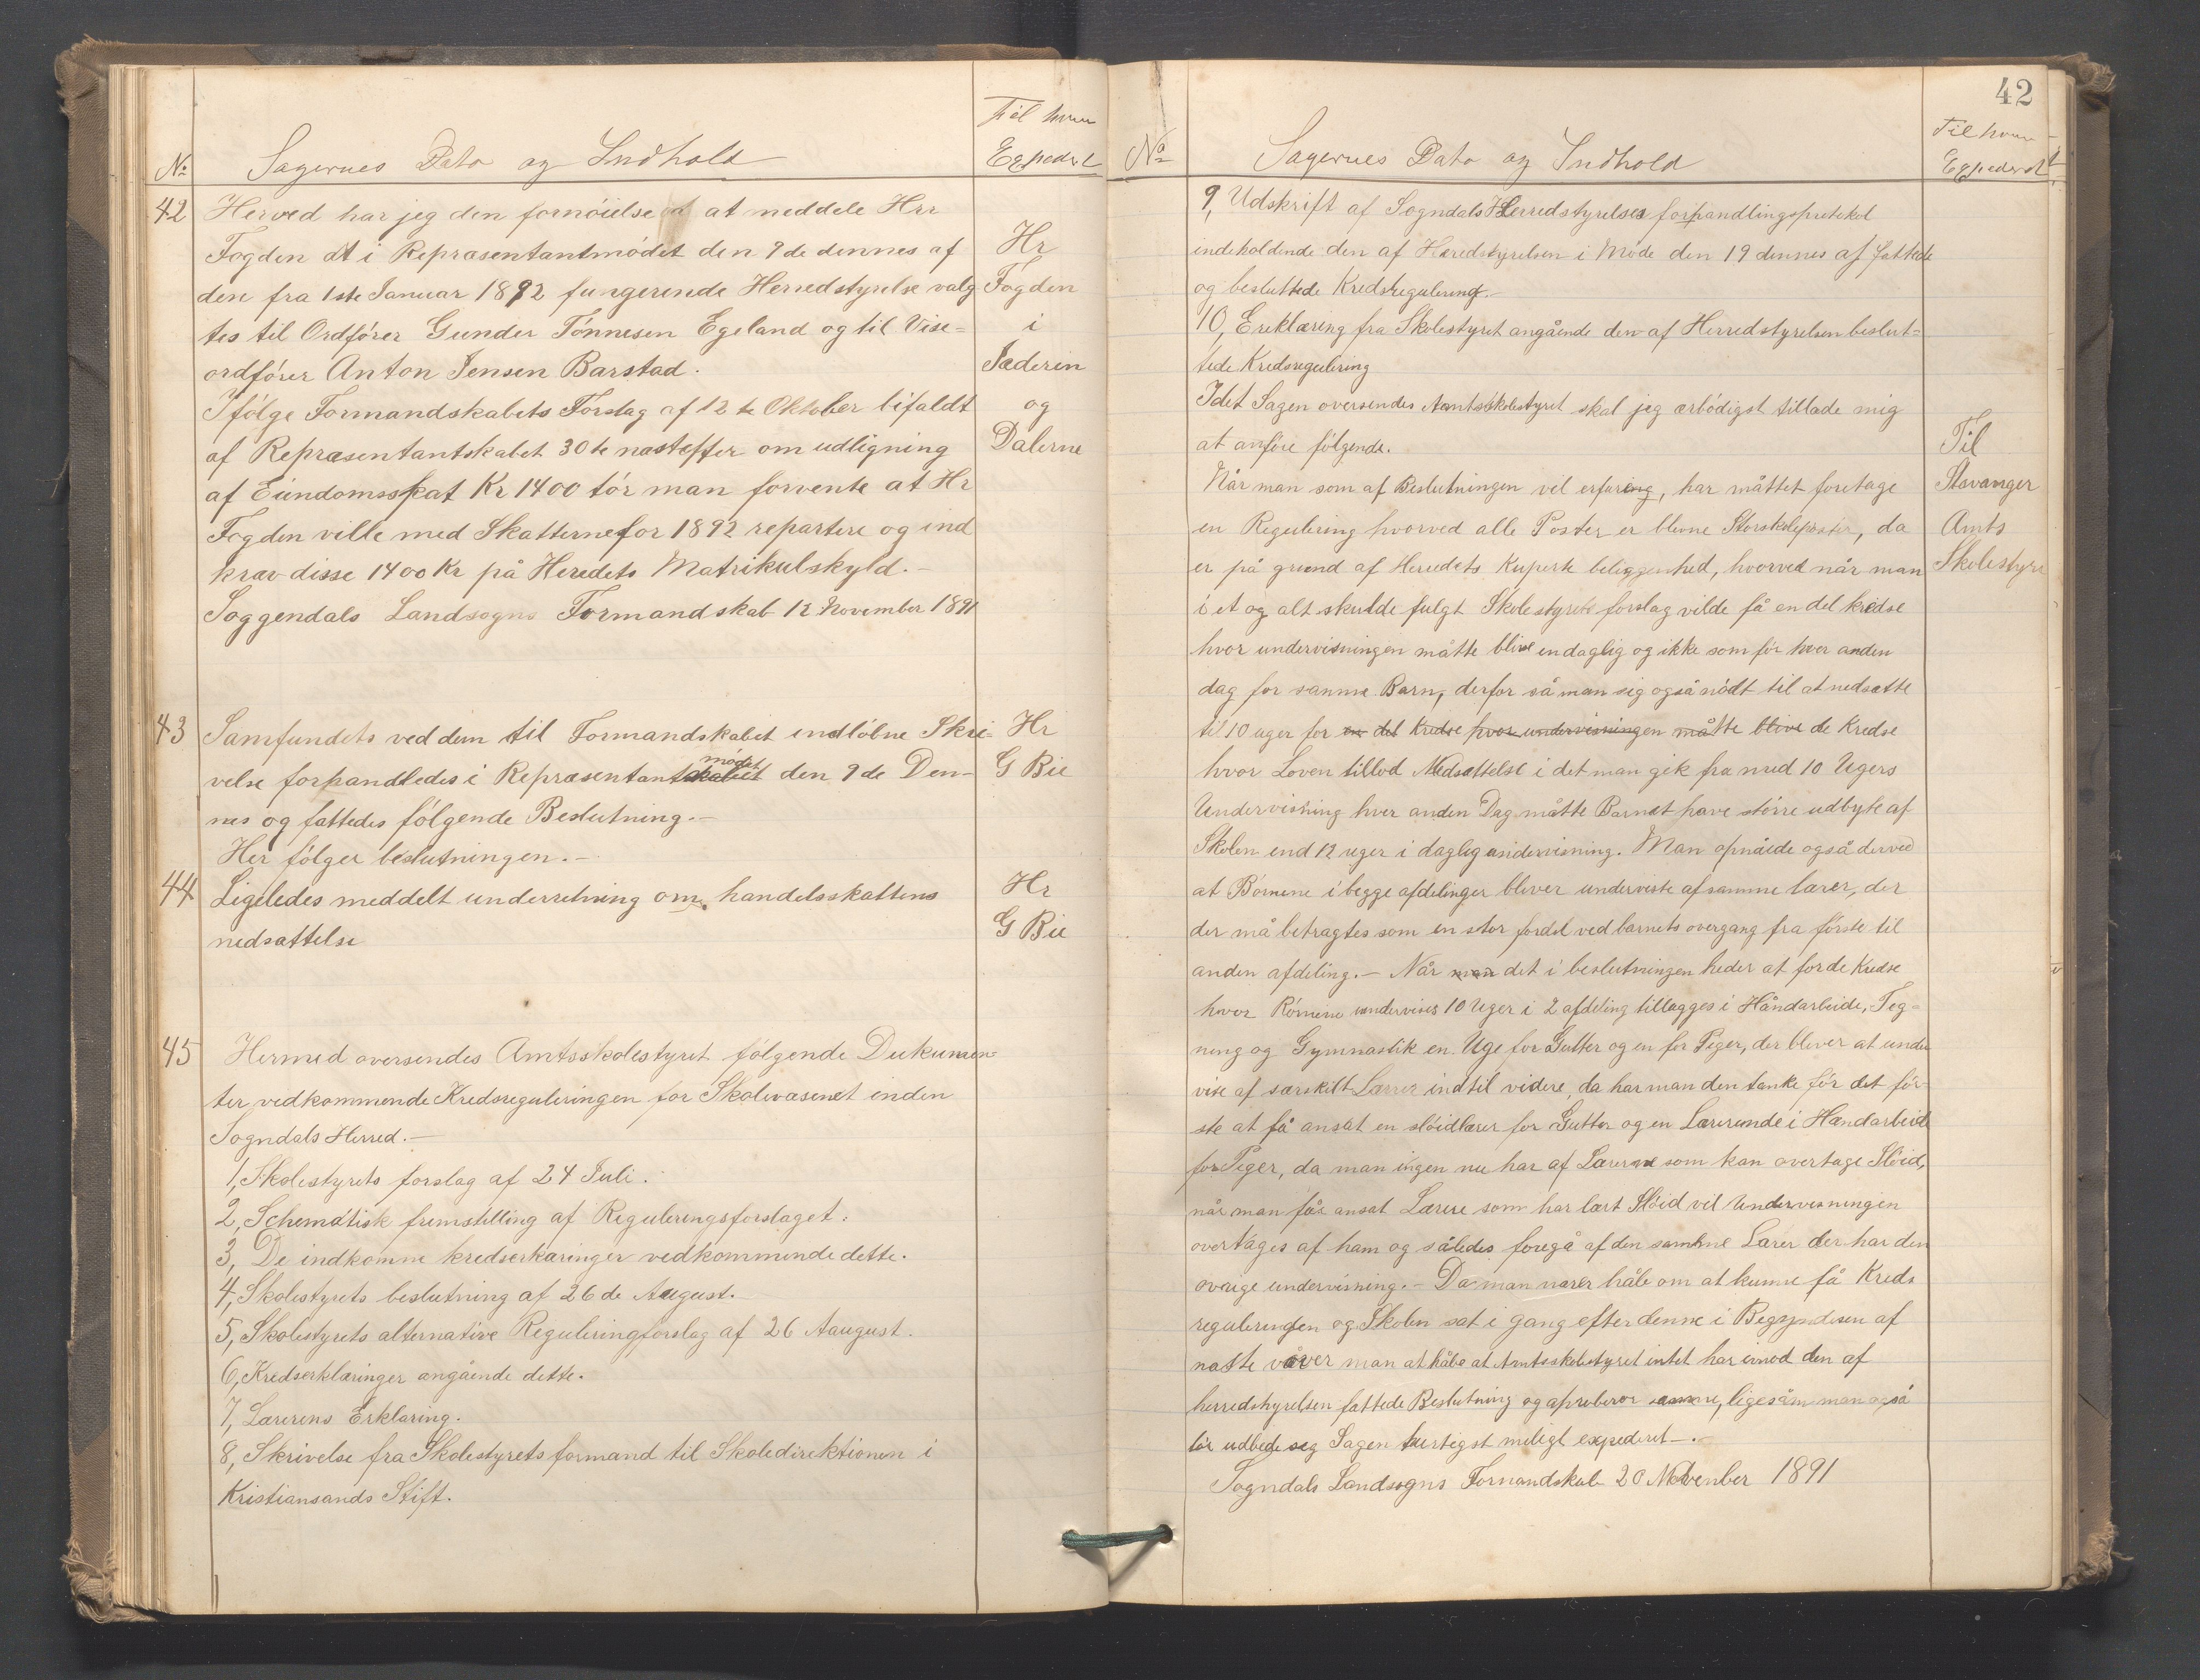 No Sagernes Dato og Indhold Til hvem Expederet
42 Herved har jeg den fornöielse at meddele Hrr
Fogden at i Repræsentantmödet den 9de dennes af
den fra 1ste Januar 1892 fungerende Herredstyrelse valg
tes til Ordförer Gunder Tönnesen Egeland og til Vise=
ordförer Anton Jensen Barstad.
Ifölge Formandskabets Forslag af 12te Oktober bifaldt
af Repræsentantskabet 30te næstefter om udligning
af Eiindomsskat Kr 1400 tör man forvente at Hr
Fogden ville med Skatterne for 1892 repartere og ind
kræv disse 1400 Kr på Heredets Matrikulskyld.-
Soggendals Landsogns Formandskab 12 November 1891
Hr
Fogden
i
Jæderen
og
Dalerne
43 Samfundets ved dem til Formandskabet indlöbne Skri-
velse forhandledes i Repræsentantskabet mödet den 9de Den-
nes og fattedes fölgende Beslutning.-
Her fölger beslutningen.-
Hr
G Bie
44 Ligeledes meddelt underretning om handelsskattens
nedsættelse
Hr
G Bie
45 Hermed oversendes Amtsskolestyret fölgende Dukumen
ter vedkommende Kredsreguleringen for Skolevæsenet inden
Sogndals Herred.-
1, Skolestyrets forslag af 24 Juli.
2, Schematisk fremstilling af Reguleringsforslaget.
3, De indkomne kredserkæringer vedkommende dette.
4, Skolestyrets beslutning af 26de August.
5, Skolestyrets alternative Reguleringforslag af 26 Aaugust.
6, Kredserklæringer angående dette.
7, Lærerens Erklæring.
8, Skrivelse fra Skolestyrets formand til Skoledirektionen i
Kristiansands Stift.
42
No Sagernes Dato og Indhold Til hvem Expederet
9, Udskrift af Sogndals Herredstyrelses forhandlingsprotokol
indeholdende den af Heredstyrelsen i Möde den 19 dennes af fattede
og besluttede Kredsregulering.-
10, Ereklæring fra Skolestyret angående den af Herredstyrelsen beslut=
tede Kredsregulering
Idet Sagen oversendes Aamtsskolestyret skal jeg ærbödigst tillade mig
at anföre fölgende.
Når man som af Beslutningen vil erfaring, har måttet foretage
en Regulering hvorved alle Poster er blevne Storskoleposter, da
er på grund af Heredets Kuperte beliggenhed, hvorved når man
i et og alt skulde fulgt Skolestyrets forslag vilde få en del kredse
hvor undervisningen måtte blive endaglig og ikke som för hver anden
dag for samme Barn, derfor så man sig også nödt til at nedsætte
til 10 uger for en del Kredse hvor undervisningen måtte blive de Kredse
hvor Loven tillod Nedsættelse i det man gik fra med 10 Ugers
Undervisning hver anden Dag måtte Barnet have större udbyte af
Skolen end 12 uger i daglig undervisning. Man opnåede også derved
at Börnene i begge afdelinger bliver underviste af samme lærer, der
der må betragtes som en stor fordel ved barnets overgang fra förste til
anden afdeling.- Når man det i beslutningen heder at for de Kredse
hvor Börnene undervises 10 Uger i 2 afdeling tillægges i Håndarbeide, Teg=
ning og Gymnastik en Uge for Gutter og en for Piger, der bliver at under
vise af særskilt Lærrer indtil videre, da har man den tanke för det för-
ste at få ansat en slöidlærer for Gutter og en Lærerinde i Handarbeide
for Piger, da man ingen nu har af Lærerne som kan overtage Slöid,
når man får ansat Lærere som har lært Slöid vil Undervisningen
overtages af ham og således foregå af den samme Lærer der har den
övrige undervisning.- Da man nærer håb om at kunne få Kreds
reguleringen og Skolen sat i gang efter denne i Begyndesen af
næste våver man at håbe at Amtsskolestyret intet har imod den af
herredstyrelsen fattede Beslutning og aproberer samme, ligesåm man også
tör udbede sig Sagen hurtigst meligt expederet-.-
Sogndals Landsogns Formandskab 20 November 1891
Til
Stavanger
Amts
Skolestyre